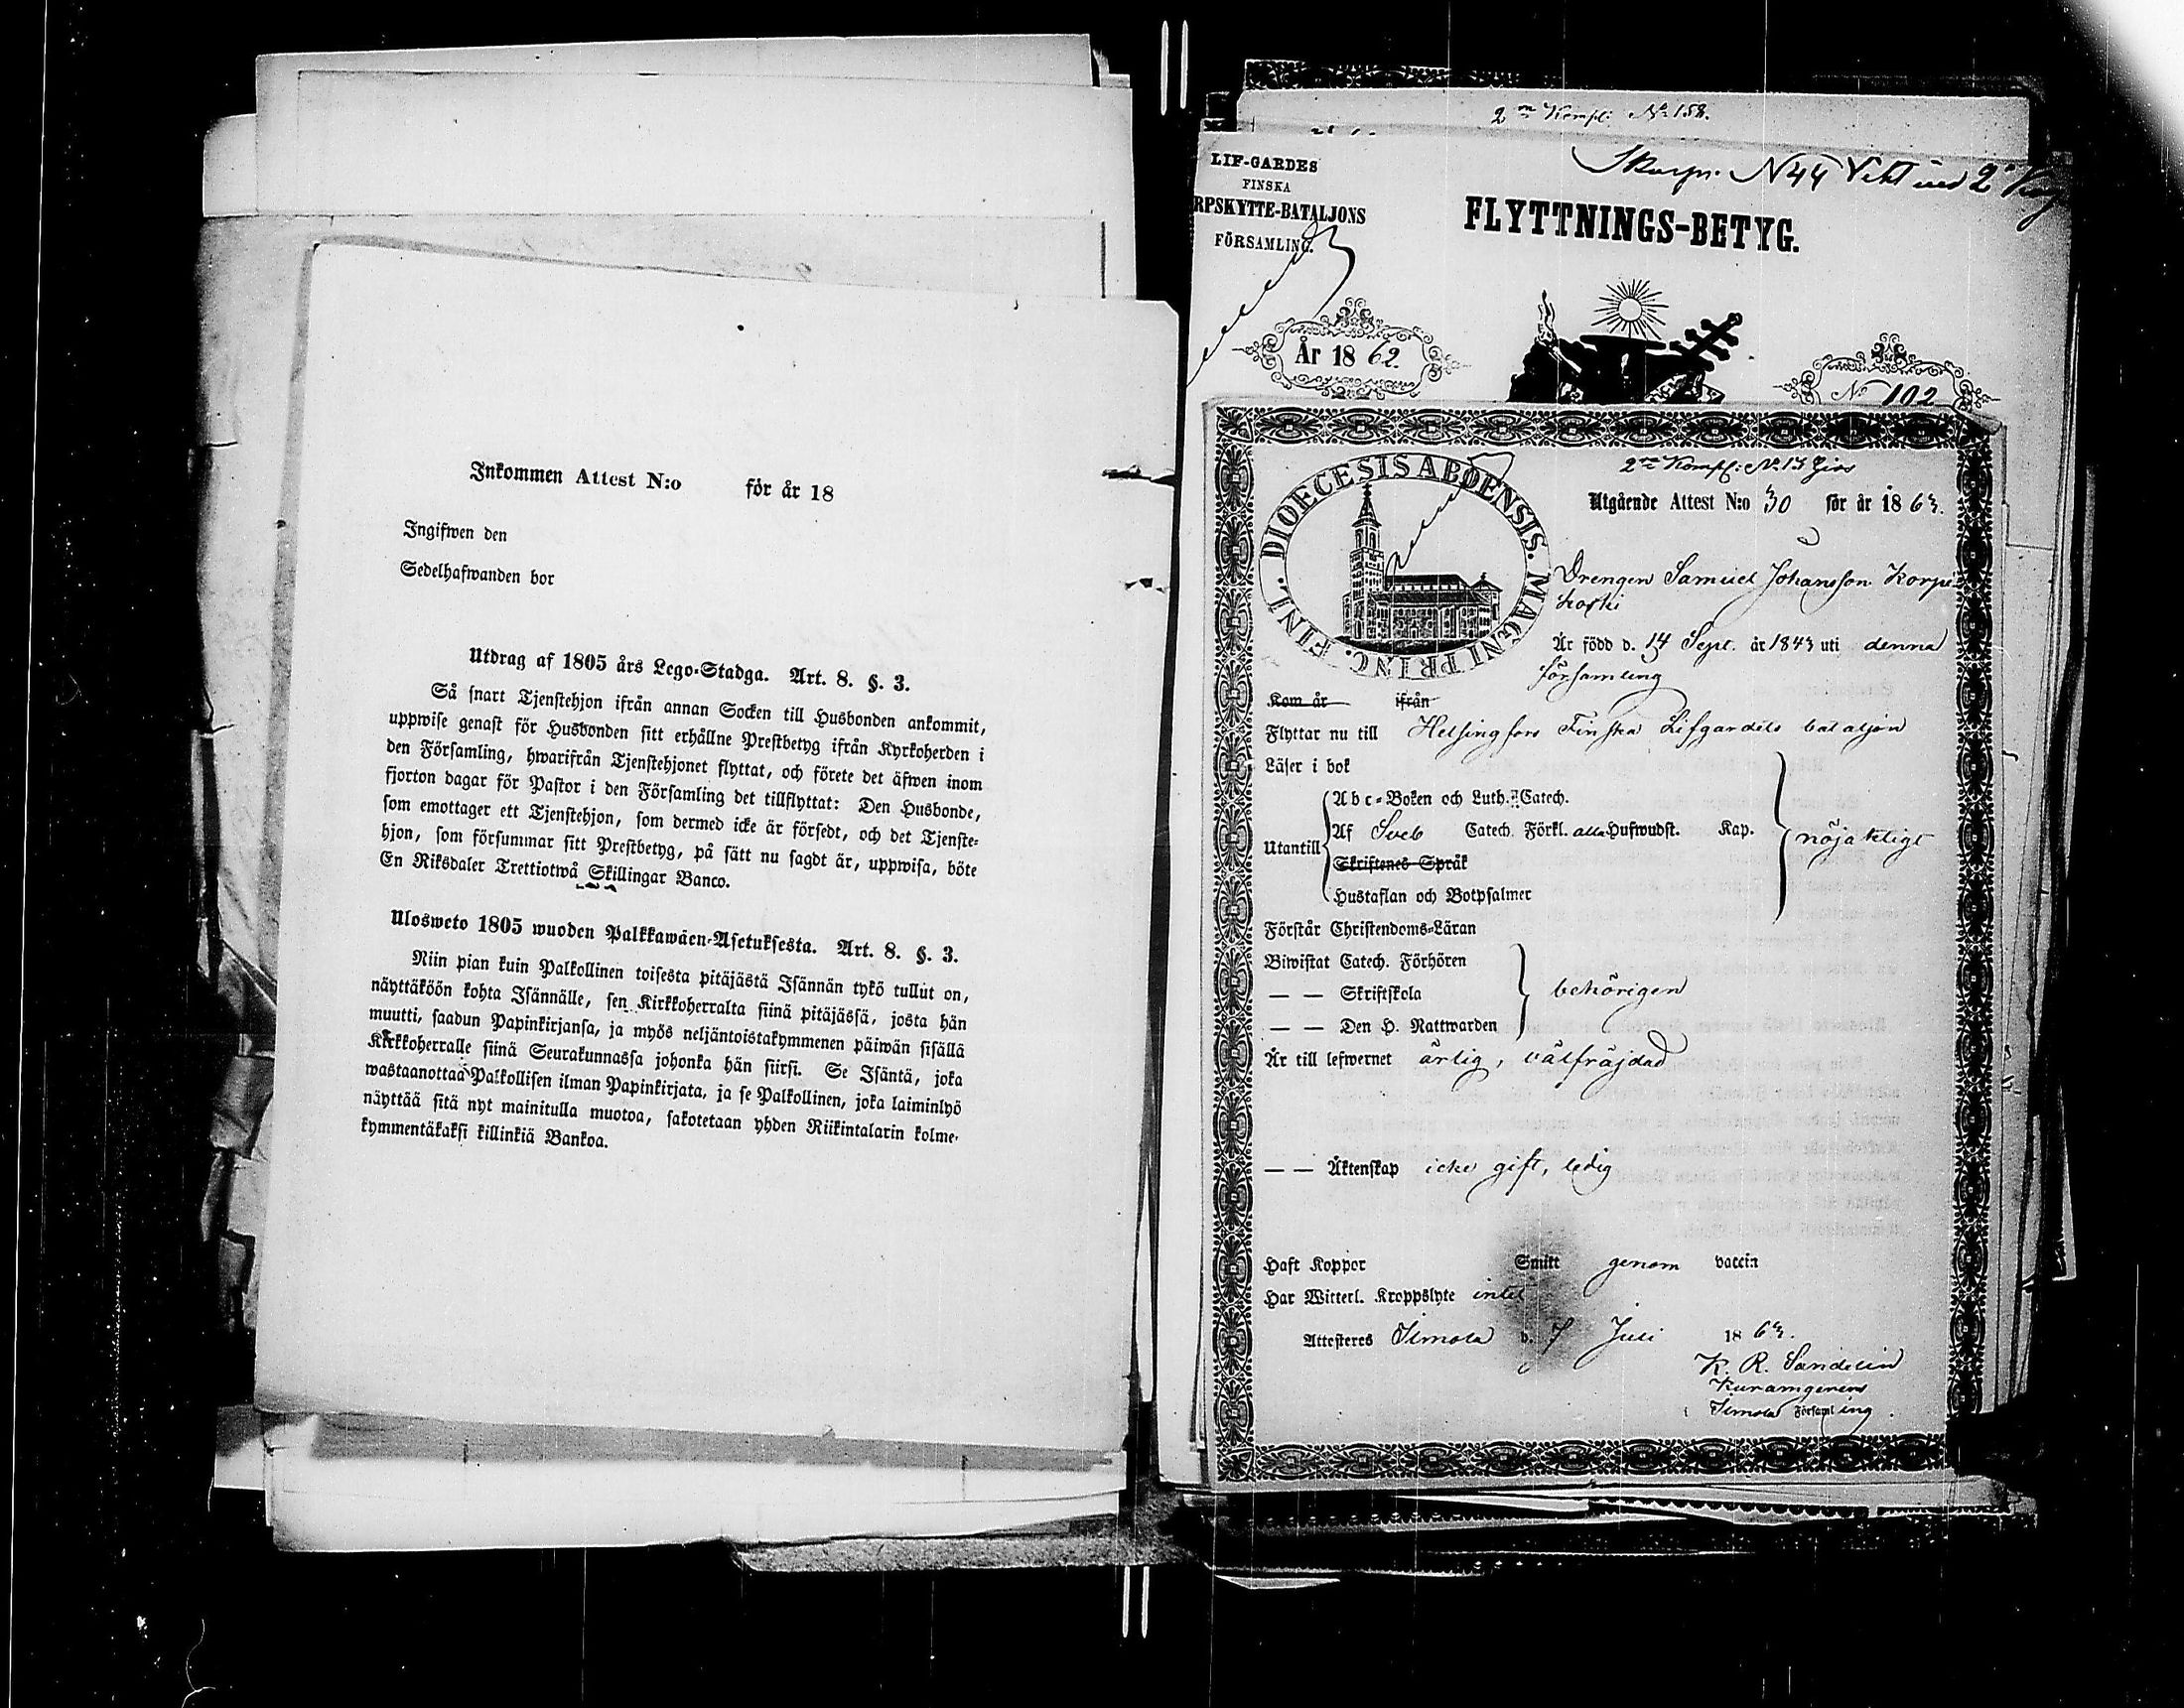 Inkommen Attest N:o för år 18
Ingifwen den
Sedelhafwanden bor
Utdrag af 1805 års Lego-Stadga. Art. 8. §. 3.
Så snart Tjenstehjon ifrån annan Socken till Husbonden ankommit,
uppwise genast för Husbonden sitt erhållne Prestbetyg ifrån Kyrkoherden i
den Församling, hwarifrån Tjenstehjonet flyttat, och förete det äfwen inom
fjorton dagar för Pastor i den Församling det tillflyttat: Den Husbonde,
som emottager ett Tjenstehjon, som dermed icke är försedt, och det Tjenste-
hjon, som försummar sitt Prestbetyg, på sätt nu sagdt är, uppwisa, böte
En Riksdaler Trettiotwå Skillingar Banco.
Ulosweto 1805 wuoden Palkkawäen-Asetuksesta. Art. 8. §. 3.
Niin pian kuin Palkollinen toisesta pitäjästä Isännän tykö tullut on,
näyttäköön kohta Isännälle, sen Kirkkoherralta siinä pitäjässä, josta hän
muutti, saadun Papinkirjansa, ja myös neljäntoistakymmenen päiwän sisällä
Kirkkoherralle siinä Seurakunnassa johonka hän siirsi. Se Isäntä, joka
wastaanottaa Palkollisen ilman Papinkirjata, ja se Palkollinen, joka laiminlyö
näyttää sitä nyt mainitulla muotoa, sakotetaan yhden Riikintalarin kolme-
kymmentäkaksi killinkiä Bankoa.
2 Kompl: No 158.
LIF-GARDES
FINSKA
RPSKYTTE-BATALJONS
FÖRSAMLING.
N 44
FLYTTNINGS-BETYG.
År 1862.
No 102
DIOECESIS ABOENSIS. MAGNI PRINC. FINL.
2 Kompl: No 13
Utgående Attest N:o 30 för år 1863.
Drengen Samuel Johansson Korpi
koski
Är född d. 14 Sept. år 1843 uti denna
församling
Kom år ifrån
Flyttar nu till Helsingfors Finska Lifgardets bataljon
Läser i bok
Utantill
Abc-Boken och Luth. Catech.
Af Sveb Catech. Förkl. alla Hufwudst. Kap.
Skriftenes Språk
Hustaflan och Botpsalmer
nöjaktligt
Förstår Christendoms-Läran
Biwistat Catech. Förhören
— — Skriftskola
— — Den H. Nattwarden
behörigen
Är till lefwernet ärlig, välfräjdad
— — Äktenskap icke gift, ledig
Haft Koppor Smitt genom vaccin
Har Witterl. Kroppslyte intet
Attesteres Simola d. 7 Juli 1863.
K. R. Sandelin
Simola Församl ing.